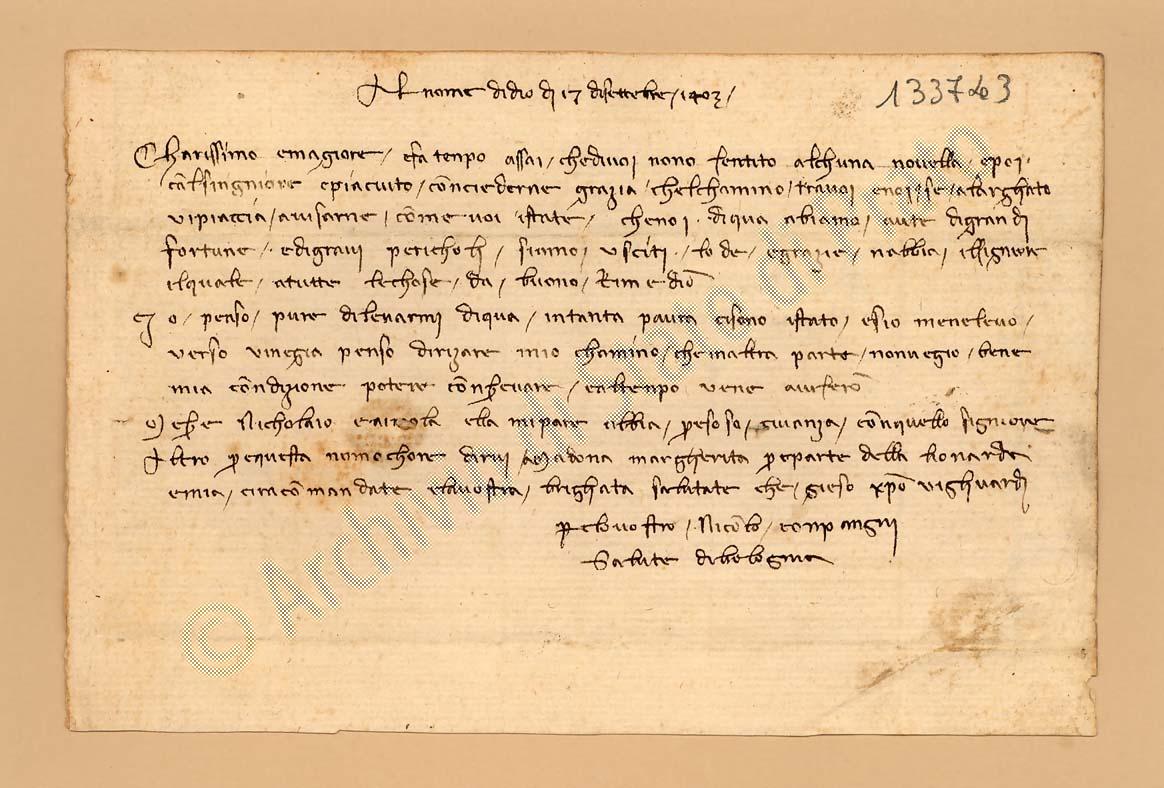 Al nome didio di 17 disettebre 1403
133743
Charissimo emagiore / efa tenpo assai / chedivoi nono sentito alchuna novella / epoi
ch'alsingniore epiacuto / conciederne grazia / chelchamino / travoi enoi / se alarghato
vipiaccia / avisarne / come voi istate / chenoi diqua abiamo / aute digrandi
fortune / edigravi pericholi / siamo / usciti / lode / egrazie / nabbia / ilsignore
ilquale / atutte lechose / da / buono / Rimedio
Io / penso / pure dilevarmi diqua / intanta paura cisono istato / esio menelevo
verso vinegia penso dirizare mio chamino / che inaltra parte / nonvegio / bene
mia condizione potere conservare / ealtenpo vene aviserò
Nicholaio ella mipare abbia / preso so / conquello signiore
Altro perquesta nomochore dirvi / Madona margherita perparte della lionarda
emia / ciracomandate elavostra / brighata salutate che / gieso xpo vighuardi
Pelovostro / Nicolo / conpangni
Salute dibologna
© Archivio di Stato di Prato